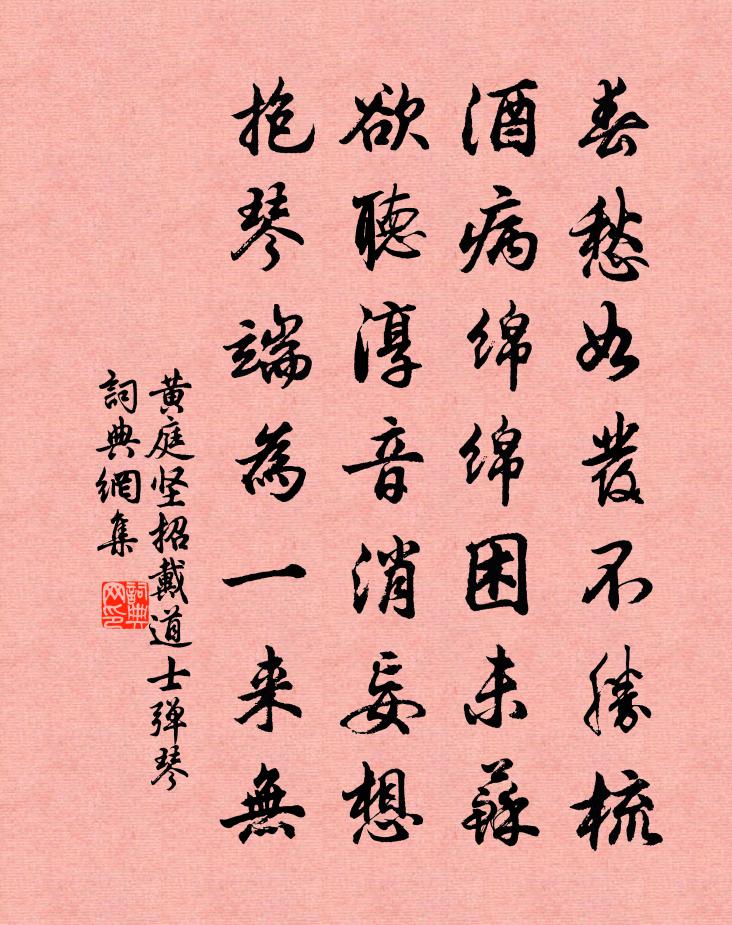 春愁如發不勝梳
酒病绵绵困未蘇
欲聴淳音消妄想
抱琴端為一来無
黄庭坚招戴道士弹琴
詞典網集
詞典网印